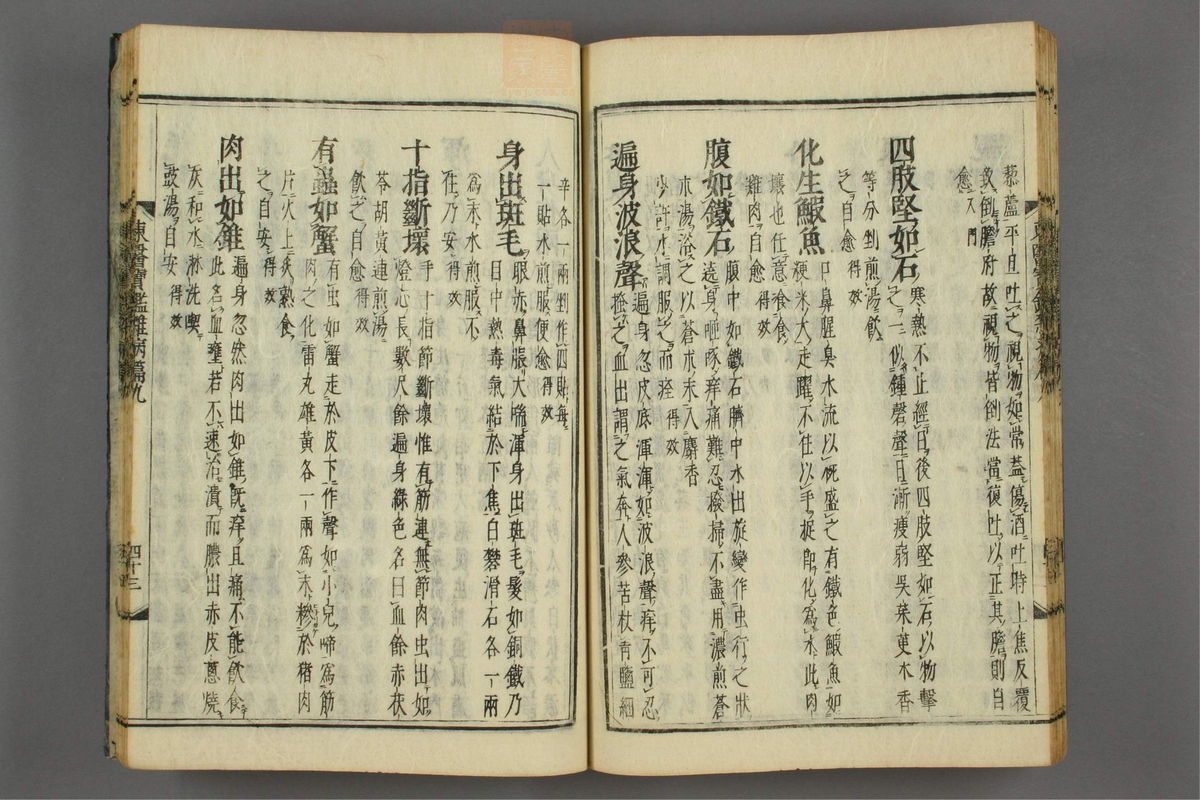 藜蘆平旦吐之視物如常蓋傷酒吐時上焦反覆
致倒膽府故視物皆倒法當復吐以正其膽則自
愈入門
四肢堅如石 寒熱不止經日後四肢堅如石以物擊
之一似鍾磬聲日漸瘦弱吳茱萸木香
等分剉煎湯飲
之自愈
化生鰕魚 口鼻腥臭水流以碗盛之有鐵色鰕魚如
粳米大走躍不住以手捉卽化爲水此肉
壞也任意食
雞肉自愈
腹如鐵石 腹中如鐵石臍中水出旋變作虫行之狀
遶身咂啄痒痛難忍撥掃不盡用濃煎蒼
朮湯浴之以蒼朮末入麝香
少許水調服之而痊 得效
遍身波浪聲 遍身忽皮底渾渾如波浪聲痒不可忍
搔之血出謂之氣奔人參苦杖靑鹽細
辛各一兩剉作四貼每
一貼水煎服便愈 得效
身出斑毛 眼赤鼻脹大喘渾身出斑毛髮如銅鐵乃
目中熱毒氣結於下焦白礬滑石各一兩
爲末水煎服不
住乃安 得效
十指斷壞 手十指節斷壞惟有筋連無節肉虫出如
燈心長數尺餘遍身綠色名曰血餘赤茯
苓胡黃連煎湯
飮之自愈 得效
有蟲如蟹 有虫如蟹走於皮下作聲如小兒啼爲筋
肉之化雷丸雄黃各一兩爲末糝於猪肉
片火上炙熟食
之自安 得效
肉出如錐 遍身忽然肉出如錐旣痒且痛不能飮食
此名血壅若不速治潰而膿出赤皮蔥燒
灰和水淋洗喫
豉湯自安 得效
東醫寶鑑雜病篇九
四十三